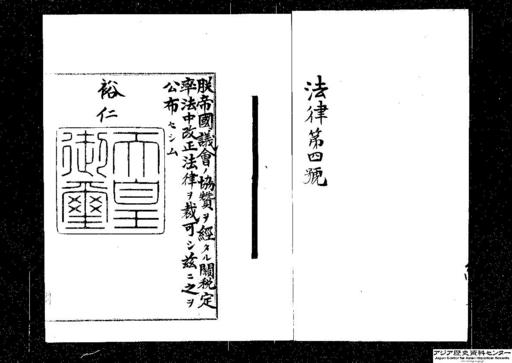 法律第四號
朕帝國議會ノ協贊ヲ經タル關稅定
率法中改正法律ヲ裁可シ茲ニ之ヲ
公布セシム
裕仁
天皇
御璽
アジア歴史資料センター
Japan Center for Asian Historical Records